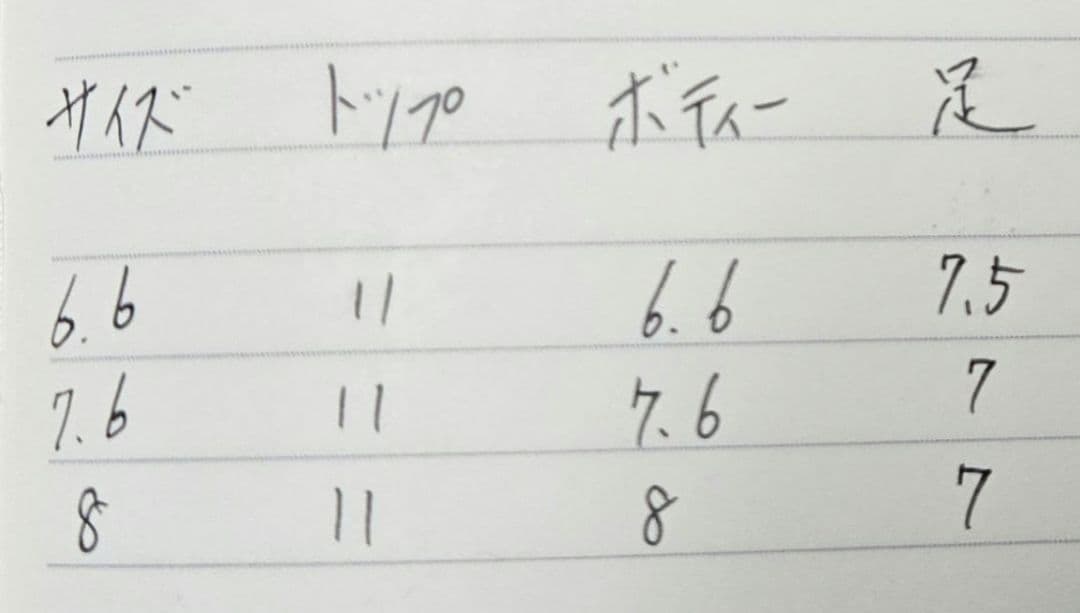 サイズ トップ ボディー 足
6.6 11 6.6 7.5
7.6 11 7.6 7
8 11 8 7